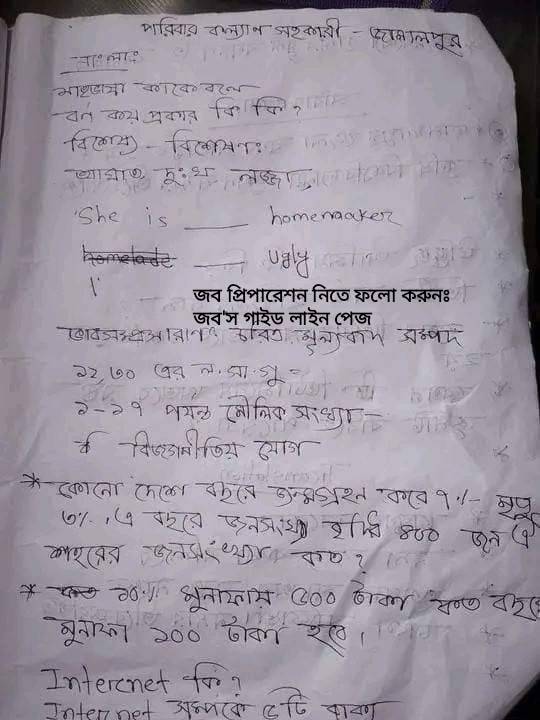 পরিবার কল্যাণ সহকারী - জামালপুর
বাংলাঃ
মাতৃভাষা কাকে বলে
বর্ণ কয় প্রকার কি কি?
বিশেষ্য - বিশেষণঃ
আঘাত দুঃখ লজ্জা
She is ___ homemaker
___ ugly
জব প্রিপারেশন নিতে ফলো করুনঃ
জব'স গাইড লাইন পেজ
ভাবসম্প্রসারাণঃ চরিত্র মূল্যবান সম্পদ
১২,৩০ এর ল.সা.গু =
১-১৭ পযন্ত মৌলিক সংখ্যা -
বিজগানীতিয় যোগ
* কোনো দেশে বছরে জন্মগ্রহন করে ৭% মৃত্যু
৩%, এ বছরে জনসংখ্যা বৃদ্ধি ৪০০ জন ঐ
শহরের জনসংখ্যা কত?
* ১০% মুনাফায় ৫০০ টাকা কত বছরে
মুনাফা ১০০ টাকা হবে।
Internet কি?
Internet সম্পর্কে ৫টি বাক্য